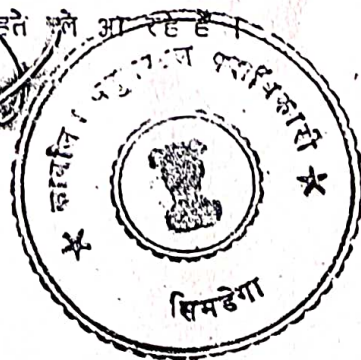 हते चले आ रहे हैं ।
कार्यालय अनुमण्डल पदाधिकारी
सिमडेगा